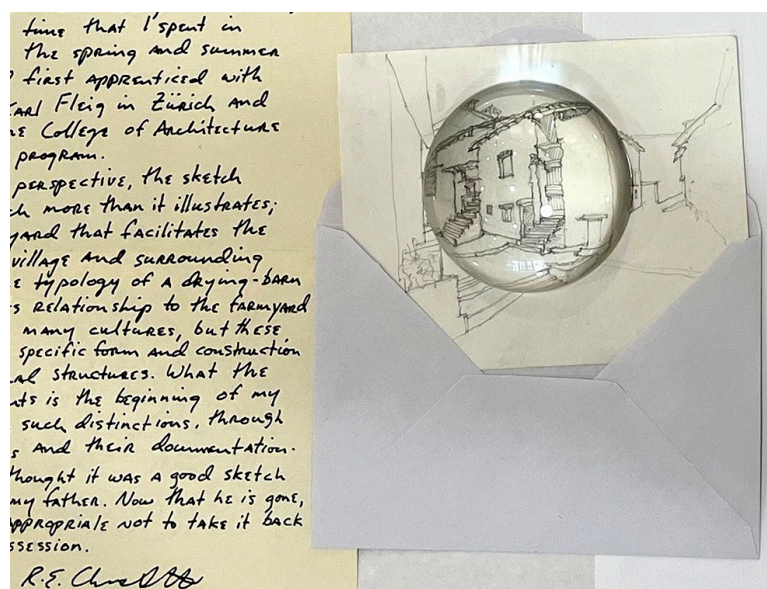 time that I spent in
the spring and summer
first apprenticed with
Karl Fleig in Zürich and
College of Architecture
program.
perspective, the sketch
more than it illustrates;
yard that facilitates the
village and surrounding
typology of a drying-barn
relationship to the farmyard
many cultures, but these
specific form and construction
structures. What the
is the beginning of my
such distinctions, through
and their documentation.
thought it was a good sketch
my father. Now that he is gone,
appropriate not to take it back
R.E.